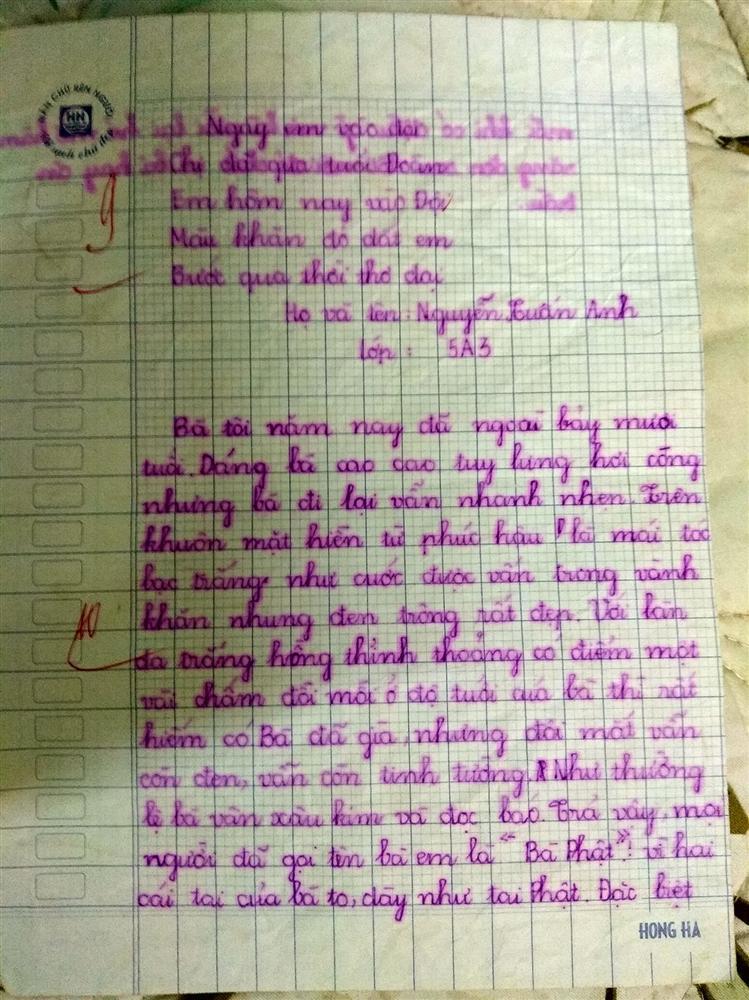 NÉT CHỮ RÈN NGƯỜI
HN
Ngày em vào đội
Chị đã qua tuổi Đoàn
Em hôm nay vào Đội
Màu khăn đỏ dắt em
Bước qua thời thơ dại
9
Họ và tên : Nguyễn Xuân Anh
Lớp : 5A3
Bà tôi năm nay đã ngoài bảy mươi
tuổi. Dáng bà cao cao tuy lưng hơi còng
nhưng bà đi lại vẫn nhanh nhẹn. Trên
khuôn mặt hiền từ phúc hậu là mái tóc
bạc trắng như cước được vấn trong vành
khăn nhung đen trông rất đẹp. Với làn
10
da trắng hồng thỉnh thoảng có điểm một
vài chấm đồi mồi ở độ tuổi của bà thì rất
hiếm có Bà đã già, nhưng đôi mắt vẫn
còn đen, vẫn còn tinh tường. Như thường
lệ bà vẫn xâu kim và đọc báo. Trả vậy, mọi
người đã gọi tên bà em là " Bà Phật"! vì hai
cái tai của bà to, dày như tai Phật. Đặc biệt
HONG HA